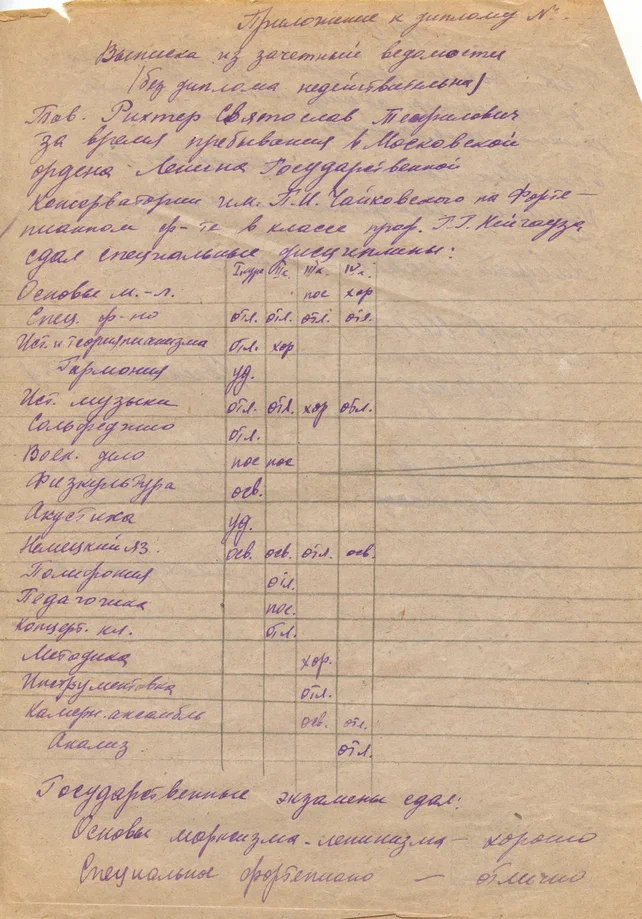 Приложение к диплому №.
Выписка из зачетный ведомости
(без диплома недействительна)
Тов. Рихтер Святослав Теофилович
за время пребывания в Московской
ордена Ленина Государственной
Консерватории им. П.И. Чайковского по Форте-
пианном ф-те в классе проф. Г.Г. Нейгауза
сдал специальные дисциплины:
I курс IIк. IIIк. IVк.
Основы м.-л. пос хор
Спец. ф-но отл. отл. отл. отл.
Ист. и теория пианизма отл. хор
Гармония уд.
Ист. музыки отл. отл. хор отл.
Сольфеджио отл.
Воен. дело пос пос
Физкультура осв.
Акустика уд.
Немецкий яз. осв. осв. отл. осв.
Полифония отл.
Педагогика пос.
Концерт. кл. отл.
Методика хор.
Инструментовка отл.
Камерн. ансамбль осв. отл.
Анализ отл.
Государственные экзамены сдал:
Основы марксизма-ленинизма – хорошо
Специальное фортепиано – отлично